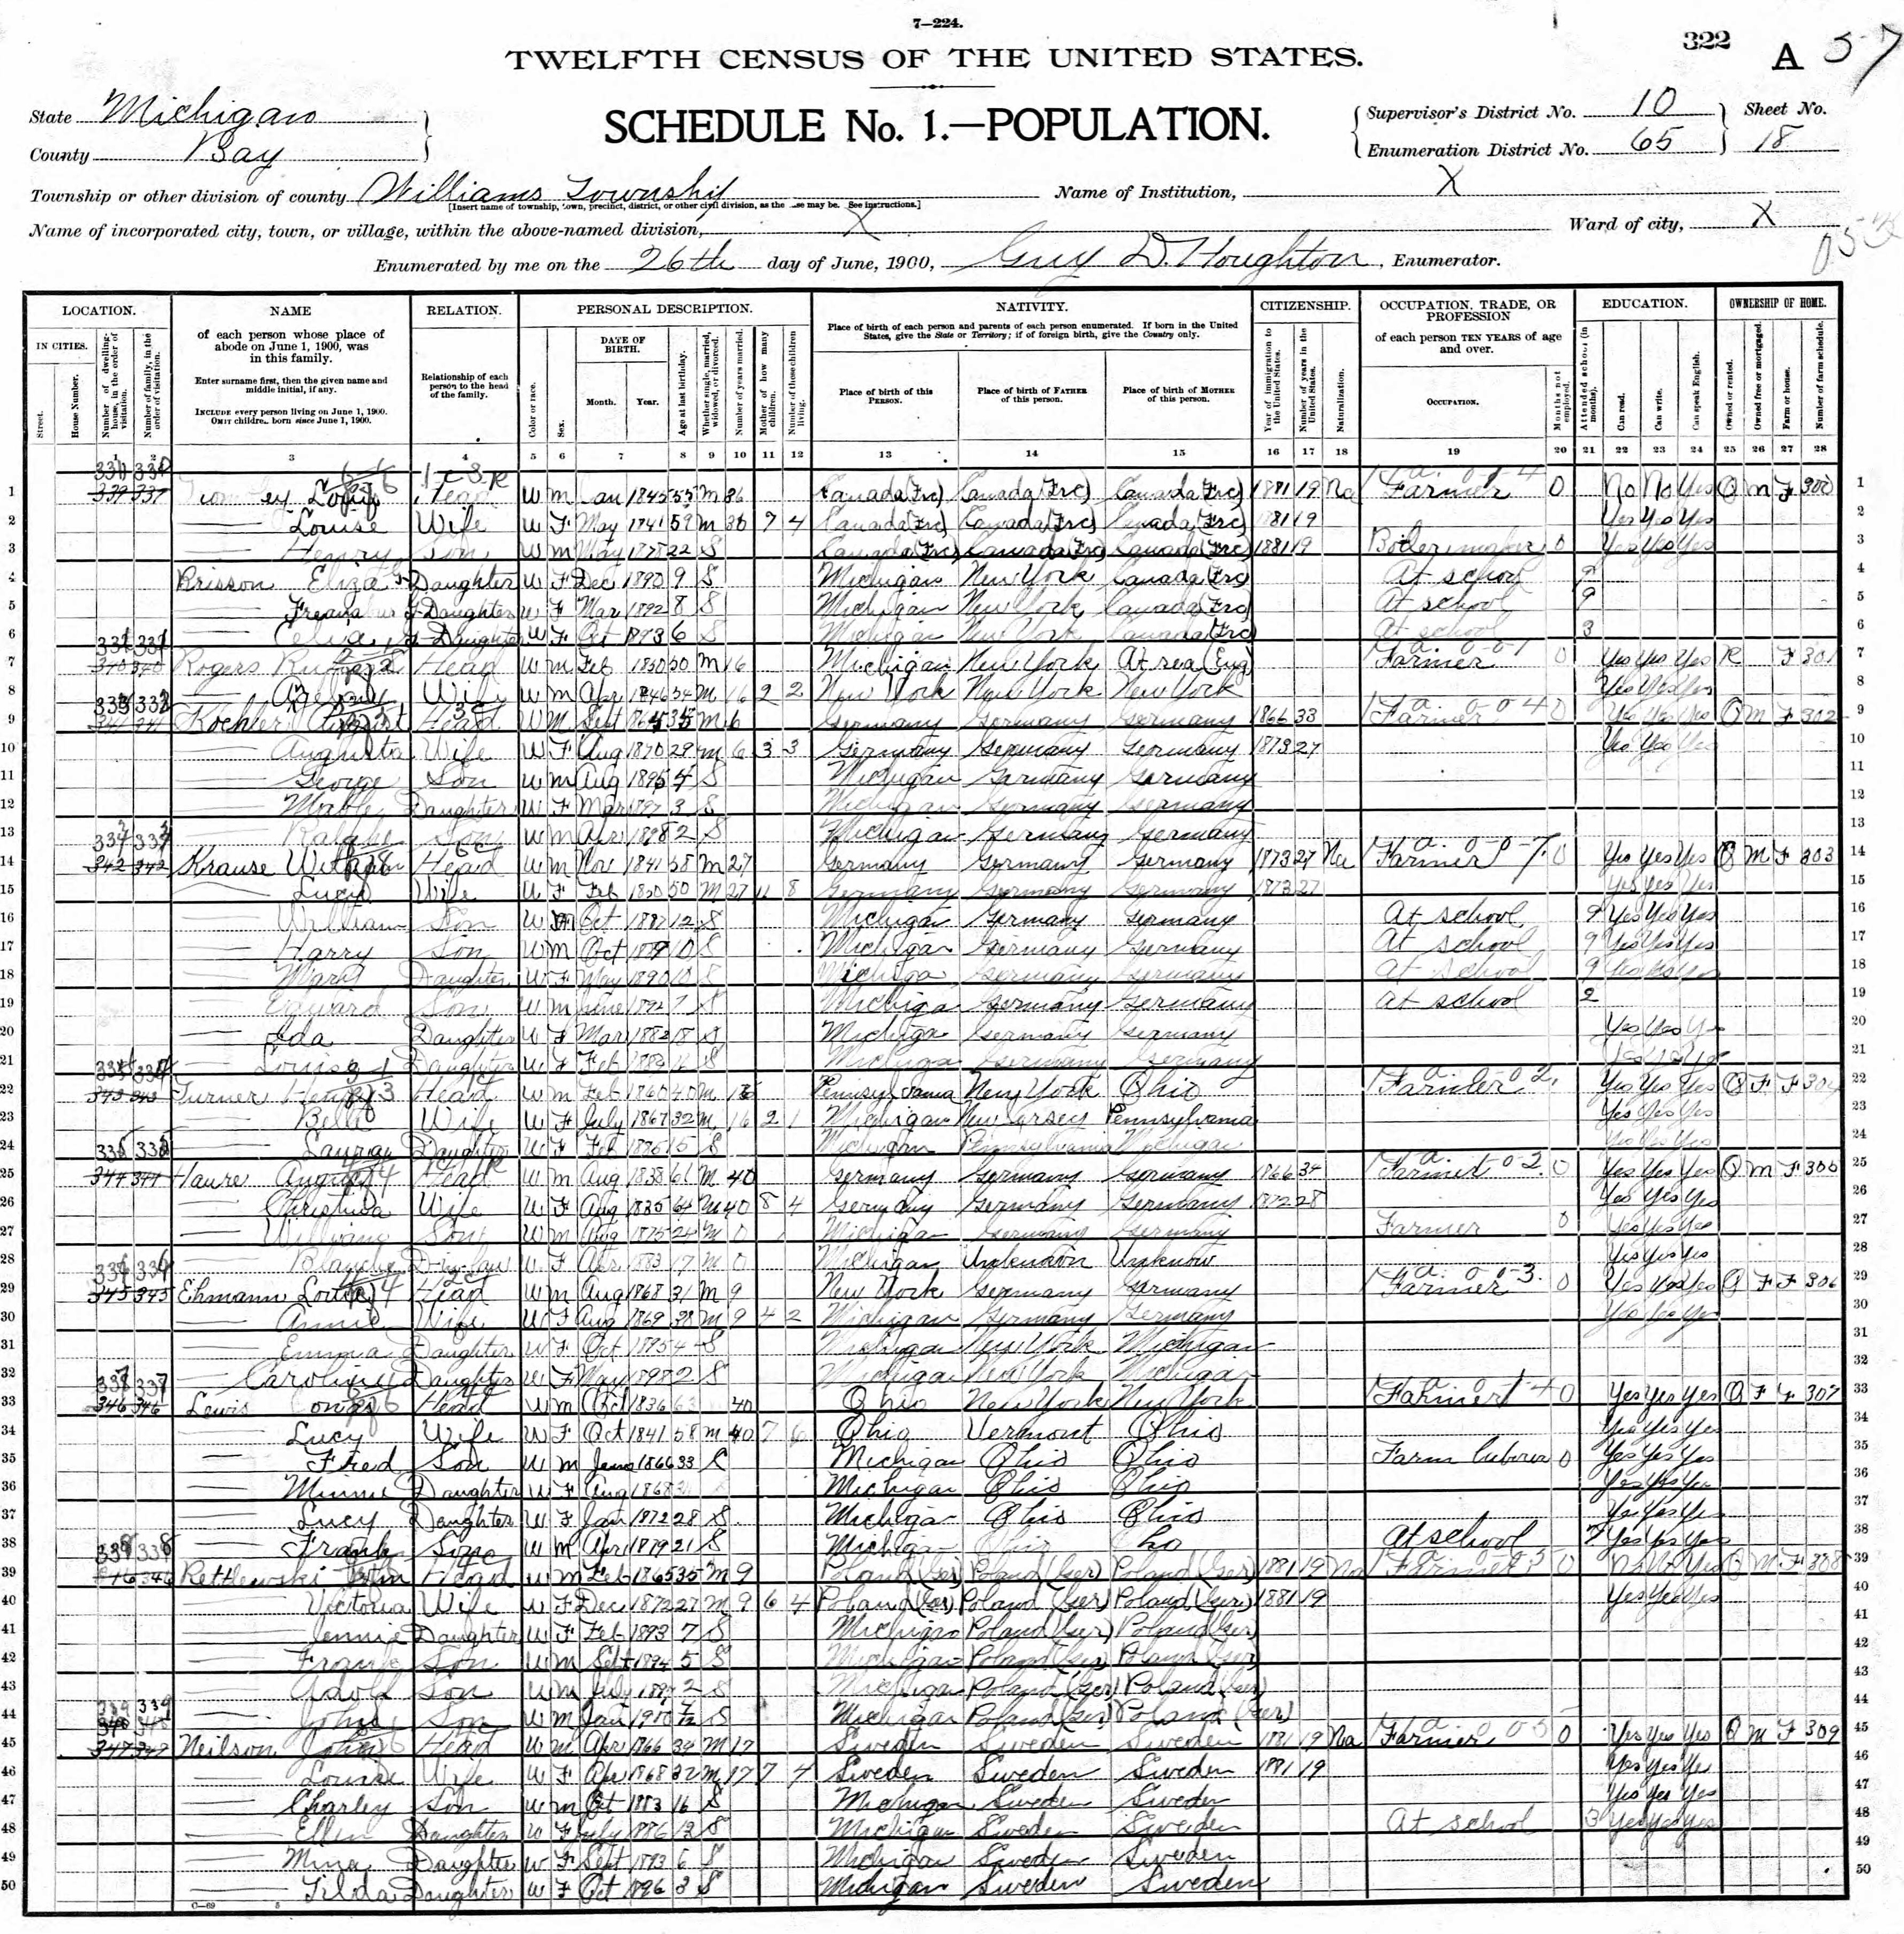 7—224.
322 A 57
TWELFTH CENSUS OF THE UNITED STATES.
SCHEDULE No. 1.—POPULATION.
State Michigan
County Bay
Supervisor's District No. 10
Enumeration District No. 65
Sheet No. 18
Township or other division of county Williams Township
[Insert name of township, town, precinct, district, or other civil division, as the case may be. See instructions.]
Name of Institution, X
Name of incorporated city, town, or village, within the above-named division, X
Ward of city, X
Enumerated by me on the 26th day of June, 1900, Guy D. Houghton, Enumerator.
LOCATION. NAME RELATION. PERSONAL DESCRIPTION. NATIVITY. CITIZENSHIP. OCCUPATION, TRADE, OR PROFESSION EDUCATION. OWNERSHIP OF HOME.
IN CITIES.
Street.
House Number.
Number of dwelling-house, in the order of visitation.
Number of family, in the order of visitation.
of each person whose place of abode on June 1, 1900, was in this family.
Enter surname first, then the given name and middle initial, if any.
INCLUDE every person living on June 1, 1900.
OMIT children born since June 1, 1900.
Relationship of each person to the head of the family.
Color or race.
Sex.
DATE OF BIRTH.
Month. Year.
Age at last birthday.
Whether single, married, widowed, or divorced.
Number of years married.
Mother of how many children.
Number of these children living.
Place of birth of each person and parents of each person enumerated. If born in the United States, give the State or Territory; if of foreign birth, give the Country only.
Place of birth of this PERSON.
Place of birth of FATHER of this person.
Place of birth of MOTHER of this person.
Year of immigration to the United States.
Number of years in the United States.
Naturalization.
of each person TEN YEARS of age and over.
OCCUPATION.
Months not employed.
Attended school (in months).
Can read.
Can write.
Can speak English.
Owned or rented.
Owned free or mortgaged.
Farm or house.
Number of farm schedule.
1 2 3 4 5 6 7 8 9 10 11 12 13 14 15 16 17 18 19 20 21 22 23 24 25 26 27 28
1 Head W M Jan 1845 55 M 36 Canada (Frc) Canada (Frc) Canada (Frc) 1881 19 Na Farmer 0 No No Yes O M F 300 1
2 Louise Wife W F May 1841 59 M 36 7 4 Canada (Frc) Canada (Frc) Canada (Frc) 1881 19 Yes Yes Yes 2
3 Henry Son W M May 1878 22 S Canada (Frc) Canada (Frc) Canada (Frc) 1881 19 Boilermaker 0 Yes Yes Yes 3
4 Brisson Eliza Daughter W F Dec 1890 9 S Michigan New York Canada (Frc) At school 9 4
5 Daughter W F Mar 1892 8 S Michigan New York Canada (Frc) At school 9 5
6 Celia Daughter W F Oct 1893 6 S Michigan New York Canada (Frc) At school 3 6
7 Rogers Head W M Feb 1850 50 M 16 Michigan New York At sea (Eng) Farmer 0 Yes Yes Yes R F 301 7
8 Wife W M Apr 1846 54 M 16 2 2 New York New York New York Yes Yes Yes 8
9 Koehler August Head W M Sept 1864 35 M 6 Germany Germany Germany 1866 33 Farmer 0 Yes Yes Yes O M F 302 9
10 Augusta Wife W F Aug 1870 29 M 6 3 3 Germany Germany Germany 1873 27 Yes Yes Yes 10
11 George Son W M Aug 1895 4 S Michigan Germany Germany 11
12 Mable Daughter W F Mar 1897 3 S Michigan Germany Germany 12
13 Ralph Son W M Apr 1898 2 S Michigan Germany Germany 13
14 Krause William Head W M Nov 1841 58 M 27 Germany Germany Germany 1873 27 Na Farmer 0 Yes Yes Yes O M F 303 14
15 Lucy Wife W F Feb 1850 50 M 27 11 8 Germany Germany Germany 1873 27 Yes Yes Yes 15
16 William Son W M Oct 1887 12 S Michigan Germany Germany At school 9 Yes Yes Yes 16
17 Harry Son W M Oct 1889 10 S Michigan Germany Germany At school 9 Yes Yes Yes 17
18 Mary Daughter W F May 1890 10 S Michigan Germany Germany At school 9 Yes Yes Yes 18
19 Edward Son W M June 1892 7 S Michigan Germany Germany At school 2 19
20 Ida Daughter W F Mar 1882 18 S Michigan Germany Germany Yes Yes Yes 20
21 Louisa Daughter W F Feb S Michigan Germany Germany Yes Yes Yes 21
22 Turner Henry Head W M Feb 1860 40 M 16 Pennsylvania New York Ohio Farmer Yes Yes Yes O F F 304 22
23 Belle Wife W F July 1867 32 M 16 2 1 Michigan New Jersey Pennsylvania Yes Yes Yes 23
24 Laura Daughter W F Feb 1885 15 S Michigan Pennsylvania Michigan Yes Yes Yes 24
25 Haure August Head W M Aug 1838 61 M 40 Germany Germany Germany 1866 34 Farmer 0 Yes Yes Yes O M F 305 25
26 Christina Wife W F Aug 1835 64 M 40 8 4 Germany Germany Germany 1872 28 Yes Yes Yes 26
27 William Son W M Aug 1875 24 M 0 Michigan Germany Germany Farmer 0 Yes Yes Yes 27
28 Blanche D-in-law W F Apr 1883 17 M 0 Michigan Unknown Unknown Yes Yes Yes 28
29 Ehmann Louis Head W M Aug 1868 31 M 9 New York Germany Germany Farmer 0 Yes Yes Yes O F F 306 29
30 Annie Wife W F Aug 1869 30 M 9 4 2 Michigan Germany Germany Yes Yes Yes 30
31 Emma Daughter W F Oct 1895 4 S Michigan New York Michigan 31
32 Caroline Daughter W F May 1898 2 S Michigan New York Michigan 32
33 Lewis Head W M Oct 1836 63 40 Ohio New York New York Farmer 0 Yes Yes Yes O F F 307 33
34 Lucy Wife W F Oct 1841 58 M 40 7 6 Ohio Vermont Ohio Yes Yes Yes 34
35 Fred Son W M June 1866 33 S Michigan Ohio Ohio Farm laborer 0 Yes Yes Yes 35
36 Minnie Daughter W F Aug 1868 31 Michigan Ohio Ohio Yes Yes Yes 36
37 Lucy Daughter W F Jan 1872 28 S Michigan Ohio Ohio Yes Yes Yes 37
38 Frank Son W M Apr 1879 21 S Michigan Ohio Ohio At school 7 Yes Yes Yes 38
39 Retlewski John Head W M Feb 1865 35 M 9 Poland (Ger) Poland (Ger) Poland (Ger) 1881 19 Na Farmer 0 No No Yes O M F 308 39
40 Victoria Wife W F Dec 1872 27 M 9 6 4 Poland (Ger) Poland (Ger) Poland (Ger) 1881 19 Yes Yes Yes 40
41 Jennie Daughter W F Feb 1893 7 S Michigan Poland (Ger) Poland (Ger) 41
42 Frank Son W M Sept 1894 5 S Michigan Poland (Ger) Poland (Ger) 42
43 Adolf Son W M July 1897 2 S Michigan Poland (Ger) Poland (Ger) 43
44 John Son W M Jan 1900 S Michigan Poland (Ger) Poland (Ger) 44
45 Neilson John Head W M Apr 1866 34 M 17 Sweden Sweden Sweden 1881 19 Na Farmer 0 Yes Yes Yes O M F 309 45
46 Louise Wife W F Apr 1868 32 M 17 7 4 Sweden Sweden Sweden 1881 19 Yes Yes Yes 46
47 Charley Son W M Oct 1883 16 S Michigan Sweden Sweden Yes Yes Yes 47
48 Ellen Daughter W F July 1886 13 S Michigan Sweden Sweden At school 3 Yes Yes Yes 48
49 Mina Daughter W F Sept 1893 6 S Michigan Sweden Sweden 49
50 Tilda Daughter W F Oct 1896 3 S Michigan Sweden Sweden 50
C—69